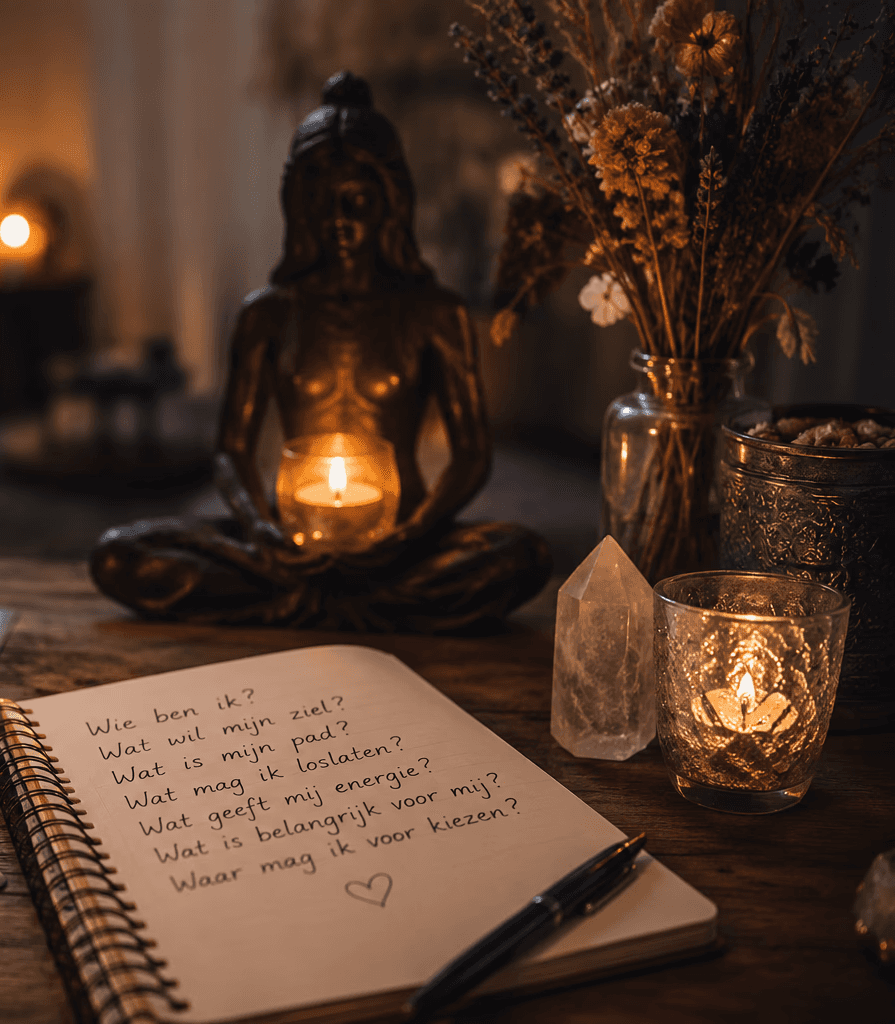 Wie ben ik?
Wat wil mijn ziel?
Wat is mijn pad?
Wat mag ik loslaten?
Wat geeft mij energie?
Wat is belangrijk voor mij?
Waar mag ik voor kiezen?